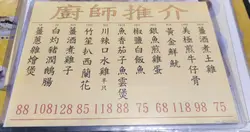 廚師推介
美極煎牛仔骨
薑酒煮土雞
黃金鮮魷
銀魚煎雞蛋
椒鹽白飯魚
魚香茄子魚雲煲
川辣口水雞 半只
竹笙扒西蘭花
薑酒煮雞子
白灼豬潤鵝腸
薑蔥雞燴煲
88 108 128 85 118 88 75 68 118 98 75